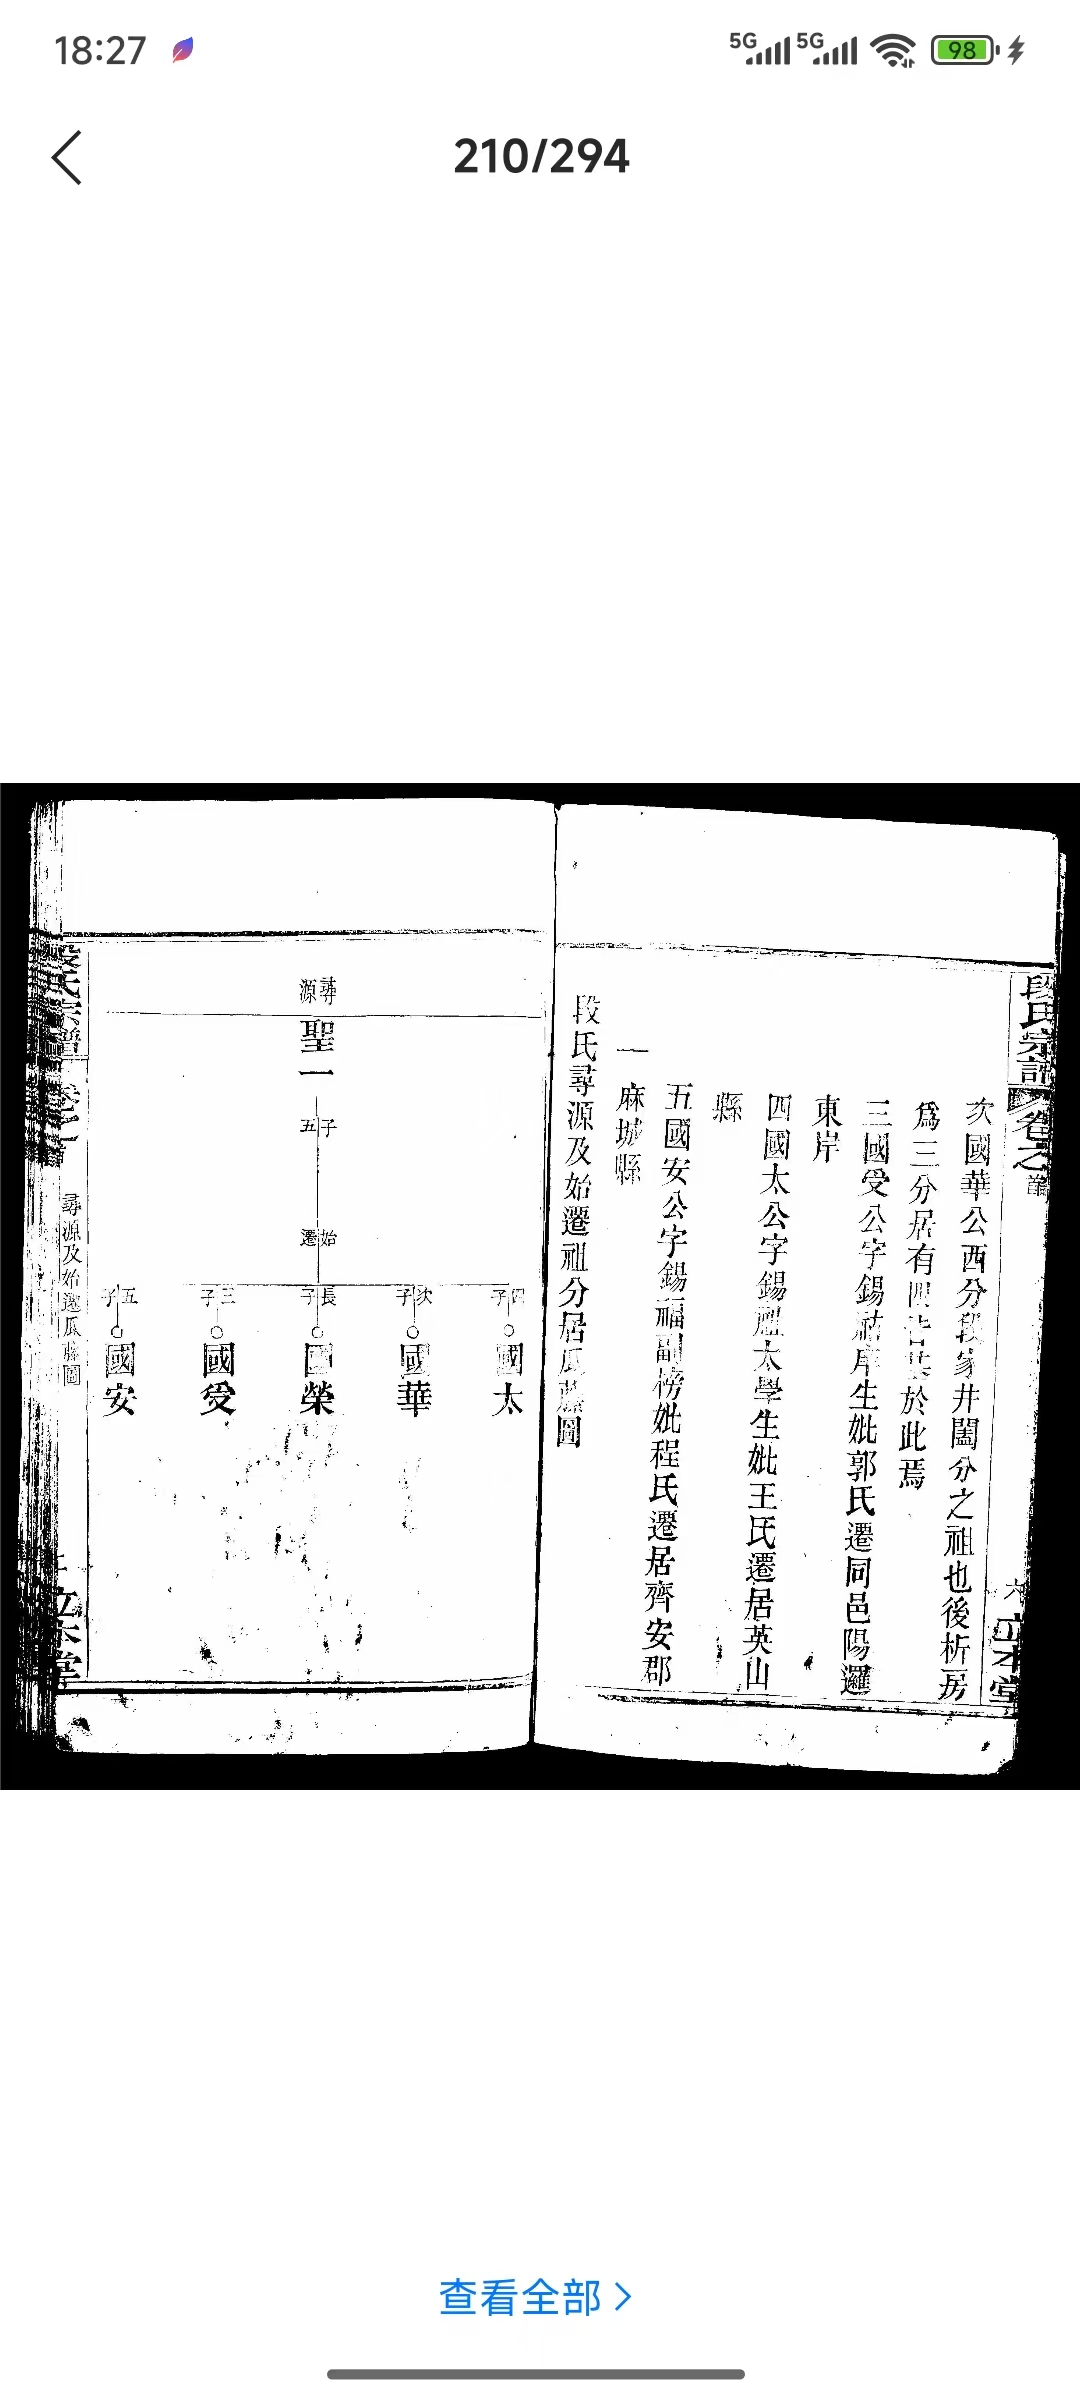 18:27
5G 5G 98
210/294
段氏宗譜 卷之首 六 立本堂
次國華公西分段家井闔分之祖也後析房
爲三分居有 於此焉
三國受公字錫祜庠生妣郭氏遷同邑陽邏
東岸
四國太公字錫 太學生妣王氏遷居英山
縣
五國安公字錫福副榜妣程氏遷居齊安郡
麻城縣
一
段氏尋源及始遷祖分居瓜藤圖
尋源
聖一
子五
始遷
四子 國太
次子 國華
長子 國榮
三子 國受
五子 國安
段氏宗譜 卷之首 尋源及始遷瓜藤圖 立本堂
查看全部